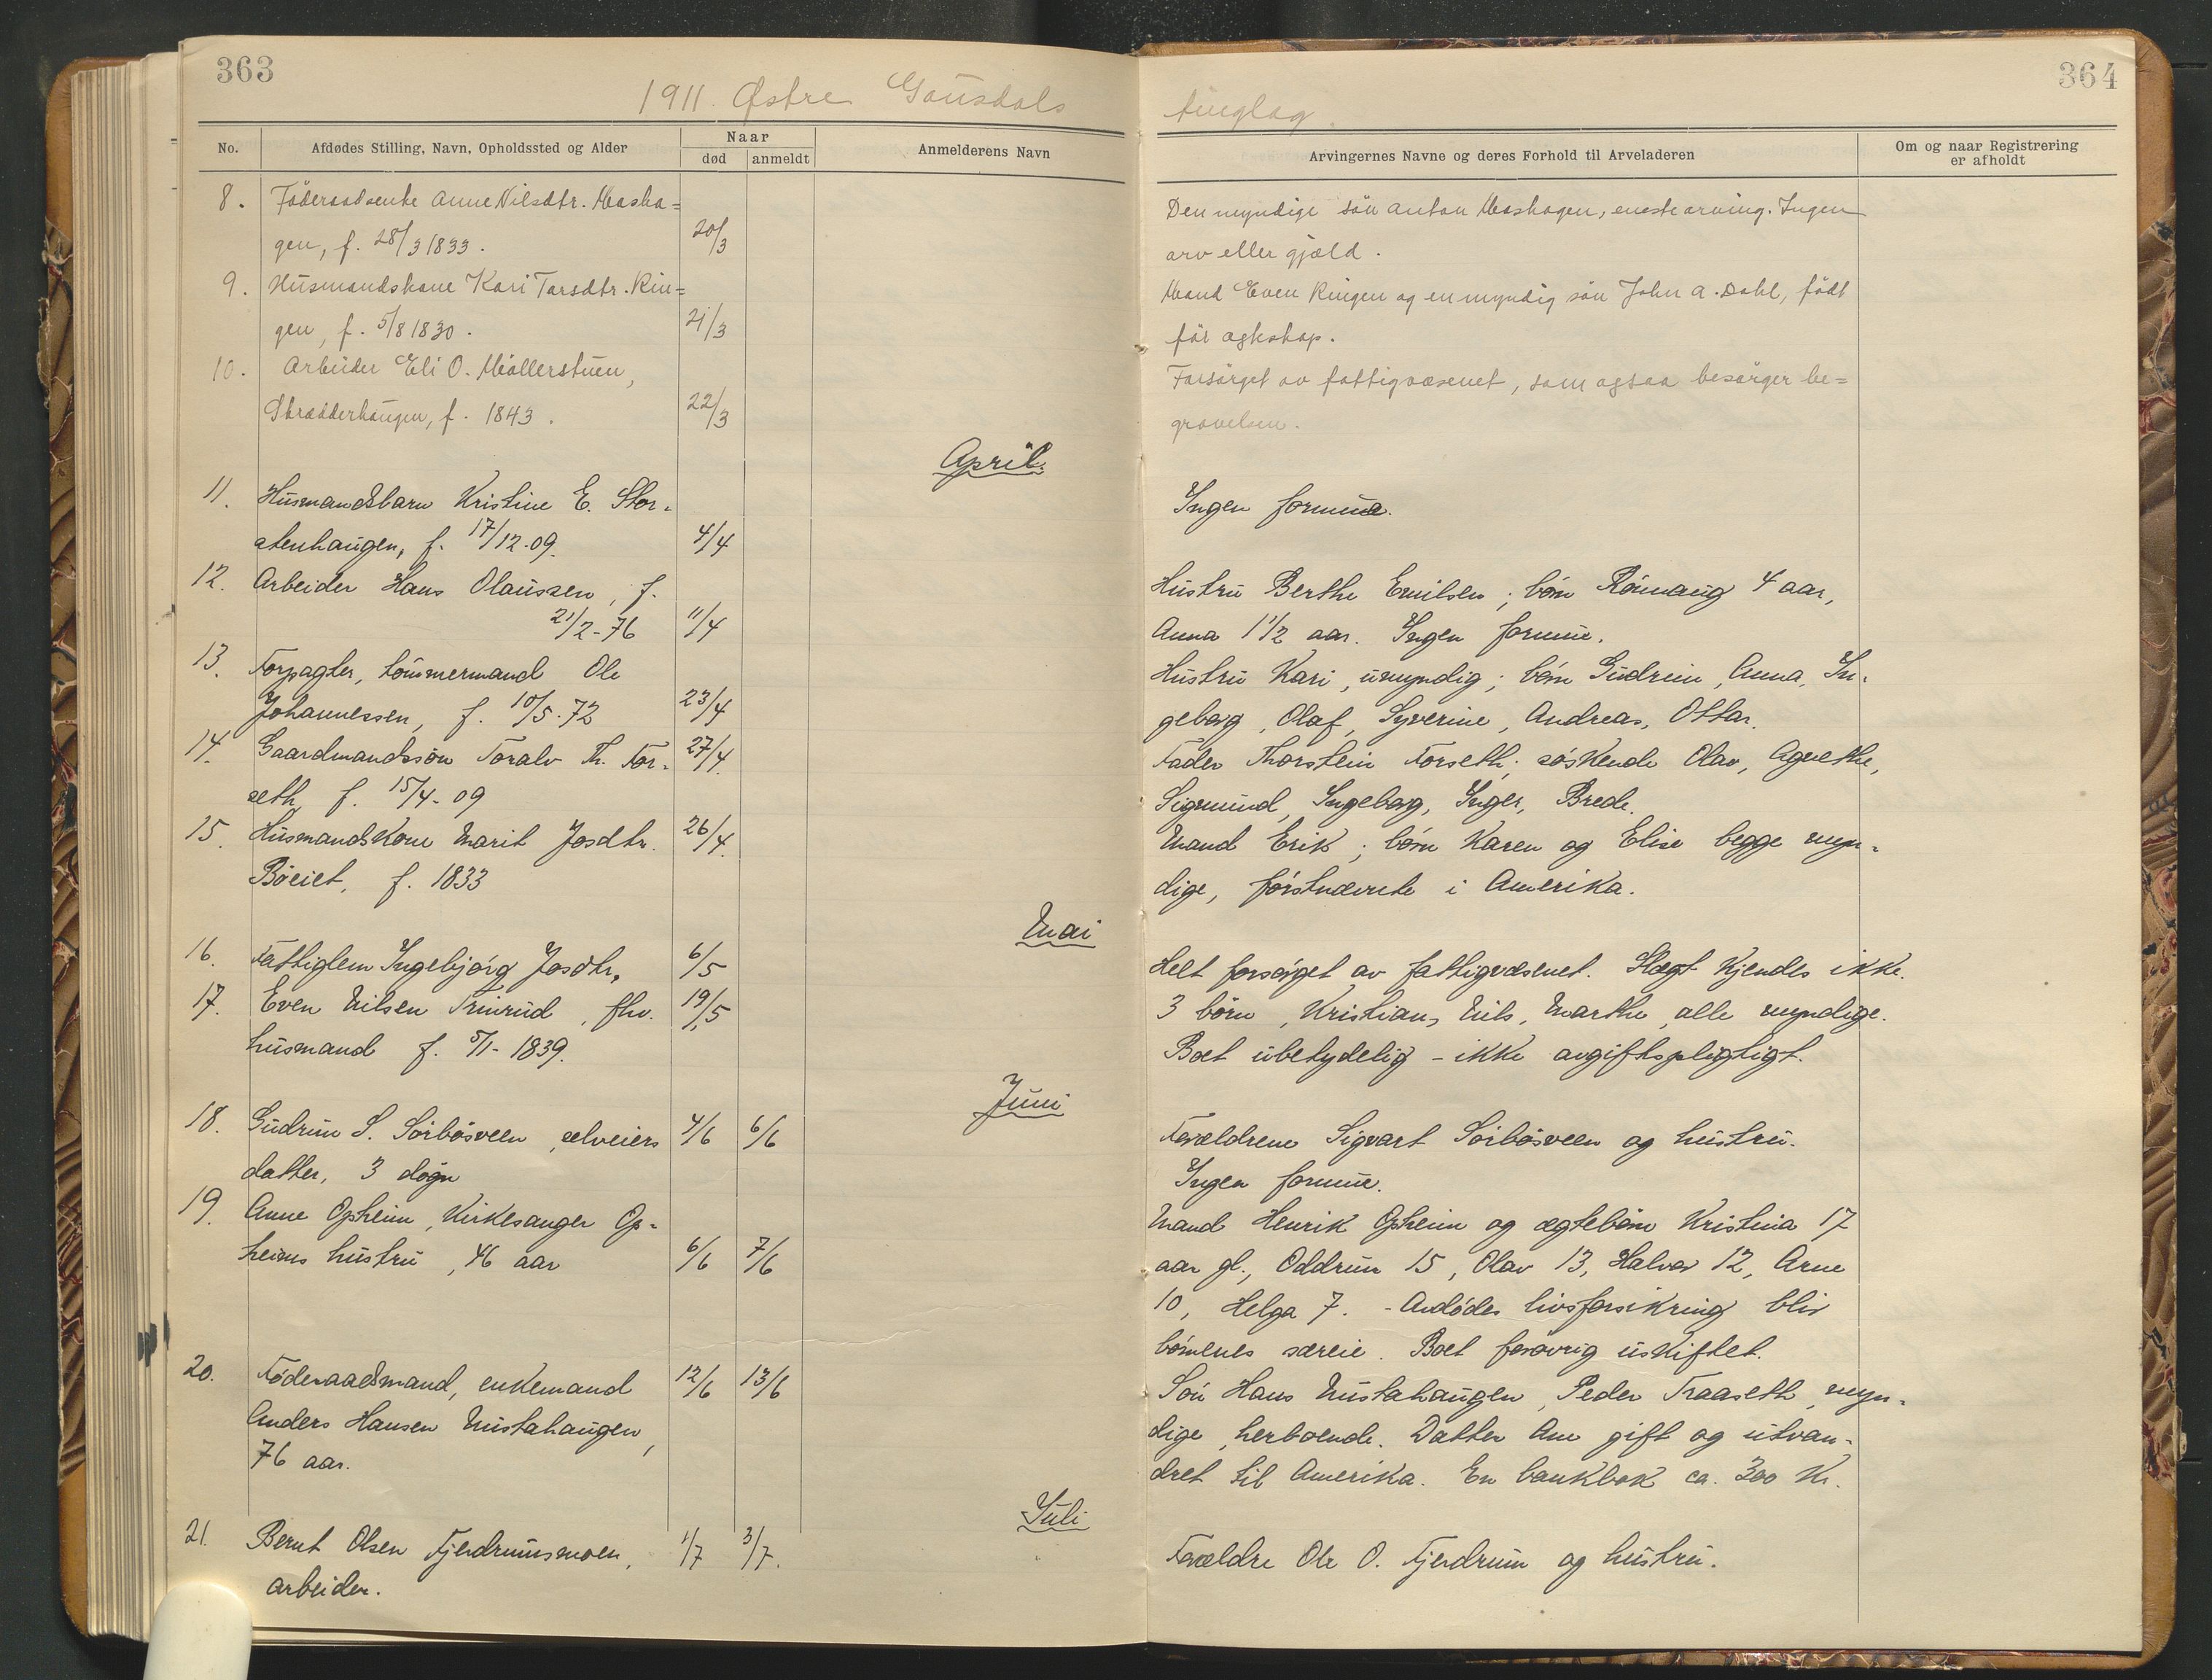 363
364
1911. Østre Gausdals tinglag.
No.
Afdødes Stilling, Navn, Opholdssted og Alder
Naar
død
anmeldt
Anmelderens Navn
Arvingernes Navne og deres Forhold til Arveladeren
Om og naar Registrering
er afholdt
8. Föderaadsenke Anne Nilsdtr. Masha=
gen, f. 28/3 1833. 20/3
Den myndige sön Anton Mashagen, eneste arving. Ingen
arv eller gjæld.
9. Husmandskone Kari Tarsdtr. Rin=
gen, f. 5/8 1830. 21/3
Mand Even Ringen og en myndig sön John A. Dahl, födt
för egteskap.
10. Arbeider Eli O. Möllerstuen,
Skrædderhaugen, f. 1843. 22/3
Forsörget av fattigvæsenet, som ogsaa besörger be=
gravelsen.
April.
11. Husmandsbarn Kristine E. Stor-
stenhaugen, f. 17/12-09. 4/4
Ingen formue.
12. Arbeider Hans Olaussen, f.
21/2-76 11/4
Hustru Berthe Emilsen; börn Rönnaug 4 aar,
Anna 1 1/2 aar. Ingen formue.
13. Forpagter, tömmermand Ole
Johannessen, f. 10/5-72 23/4
Hustru Kari, umyndig; börn Gudrun, Anna, In-
geborg, Olaf, Syverine, Andreas, Ottar.
14. Gaardmandssön Toralv Th. For-
seth, f. 15/4-09 27/4.
Fader Thorstein Forseth; söskende Olav, Agnethe,
Sigmund, Ingeborg, Inger, Brede.
15. Husmandskone Marit Josdtr.
Böeiet, f. 1833 26/4.
Mand Erik; börn Karen og Elise begge myn-
dige, förstnævnte i Amerika.
Mai
16. Fattiglem Ingebjörg Josdtr, 6/5
Helt forsörget av fattigvæsenet. Slægt kjendes ikke.
17. Even Nilsen Trinrud, fhv.
husmand f. 5/1-1839. 19/5
3 börn, Kristian, Nils, Marthe, alle myndige.
Boet ubetydelig - ikke avgiftspligtigt.
Juni
18. Gudrun S. Sörbösveen, selveiers
datter, 3 dögn 4/6 6/6
Forældrene Sigvart Sörbösveen og hustru.
Ingen formue.
19. Anne Opheim, kirkesanger Op-
heims hustru, 46 aar 6/6 7/6
Mand Henrik Opheim og ægtebörn Kristina 17
aar gl., Oddrun 15, Olav 13, Halvor 12, Arne
10, Helga 7. - Avdödes livsforsikring blir
börnenes særeie. Boet forövrig uskiftet.
20. Föderaadsmand, enkemand
Anders Hansen Mustahaugen,
76 aar. 12/6 13/6
Sön Hans Mustahaugen, Peder Traaseth, myn-
dige, herboende. Datter Ane gift og utvan-
dret til Amerika. En bankbok ca. 300 kr.
Juli
21. Bernt Olsen Fjerdrumsmoen,
arbeider. 1/7 3/7.
Forældre Ole O. Fjerdrum og hustru.